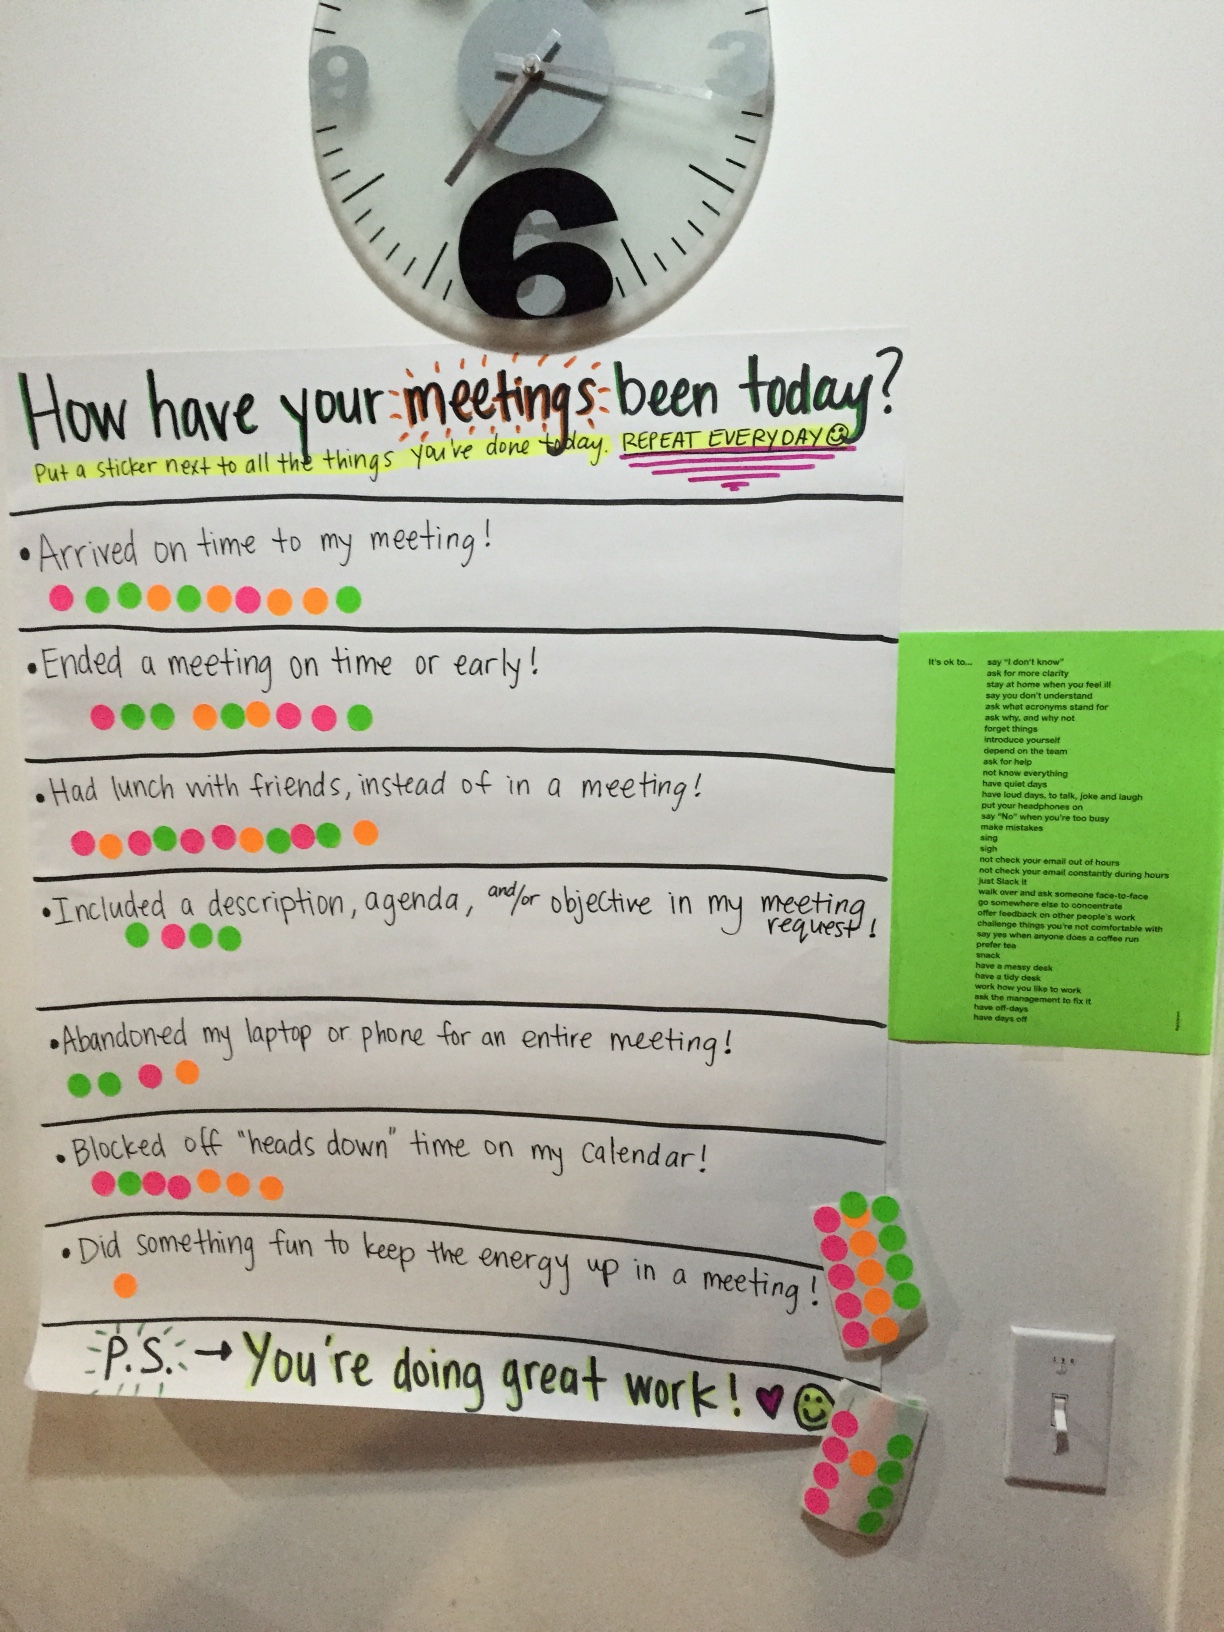 9
3
6
How have your meetings been today?
Put a sticker next to all the things you've done today. REPEAT EVERYDAY
• Arrived on time to my meeting!
• Ended a meeting on time or early!
• Had lunch with friends, instead of in a meeting!
• Included a description, agenda, and/or objective in my meeting
request!
• Abandoned my laptop or phone for an entire meeting!
• Blocked off "heads down" time on my calendar!
• Did something fun to keep the energy up in a meeting!
P.S. → You're doing great work!
It's ok to... say "I don't know"
ask for more clarity
stay at home when you feel ill
say you don't understand
ask what acronyms stand for
ask why, and why not
forget things
introduce yourself
depend on the team
ask for help
not know everything
have quiet days
have loud days, to talk, joke and laugh
put your headphones on
say "No" when you're too busy
make mistakes
sing
sigh
not check your email out of hours
not check your email constantly during hours
just Slack it
walk over and ask someone face-to-face
go somewhere else to concentrate
offer feedback on other people's work
challenge things you're not comfortable with
say yes when anyone does a coffee run
prefer tea
snack
have a messy desk
have a tidy desk
work how you like to work
ask the management to fix it
have off-days
have days off